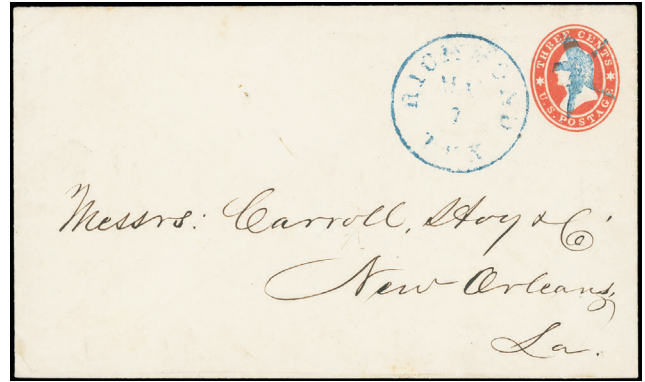 RICHMOND
7
TEX
THREE CENTS
U.S. POSTAGE
Messrs: Carroll, Hoy & Co
New Orleans,
La.